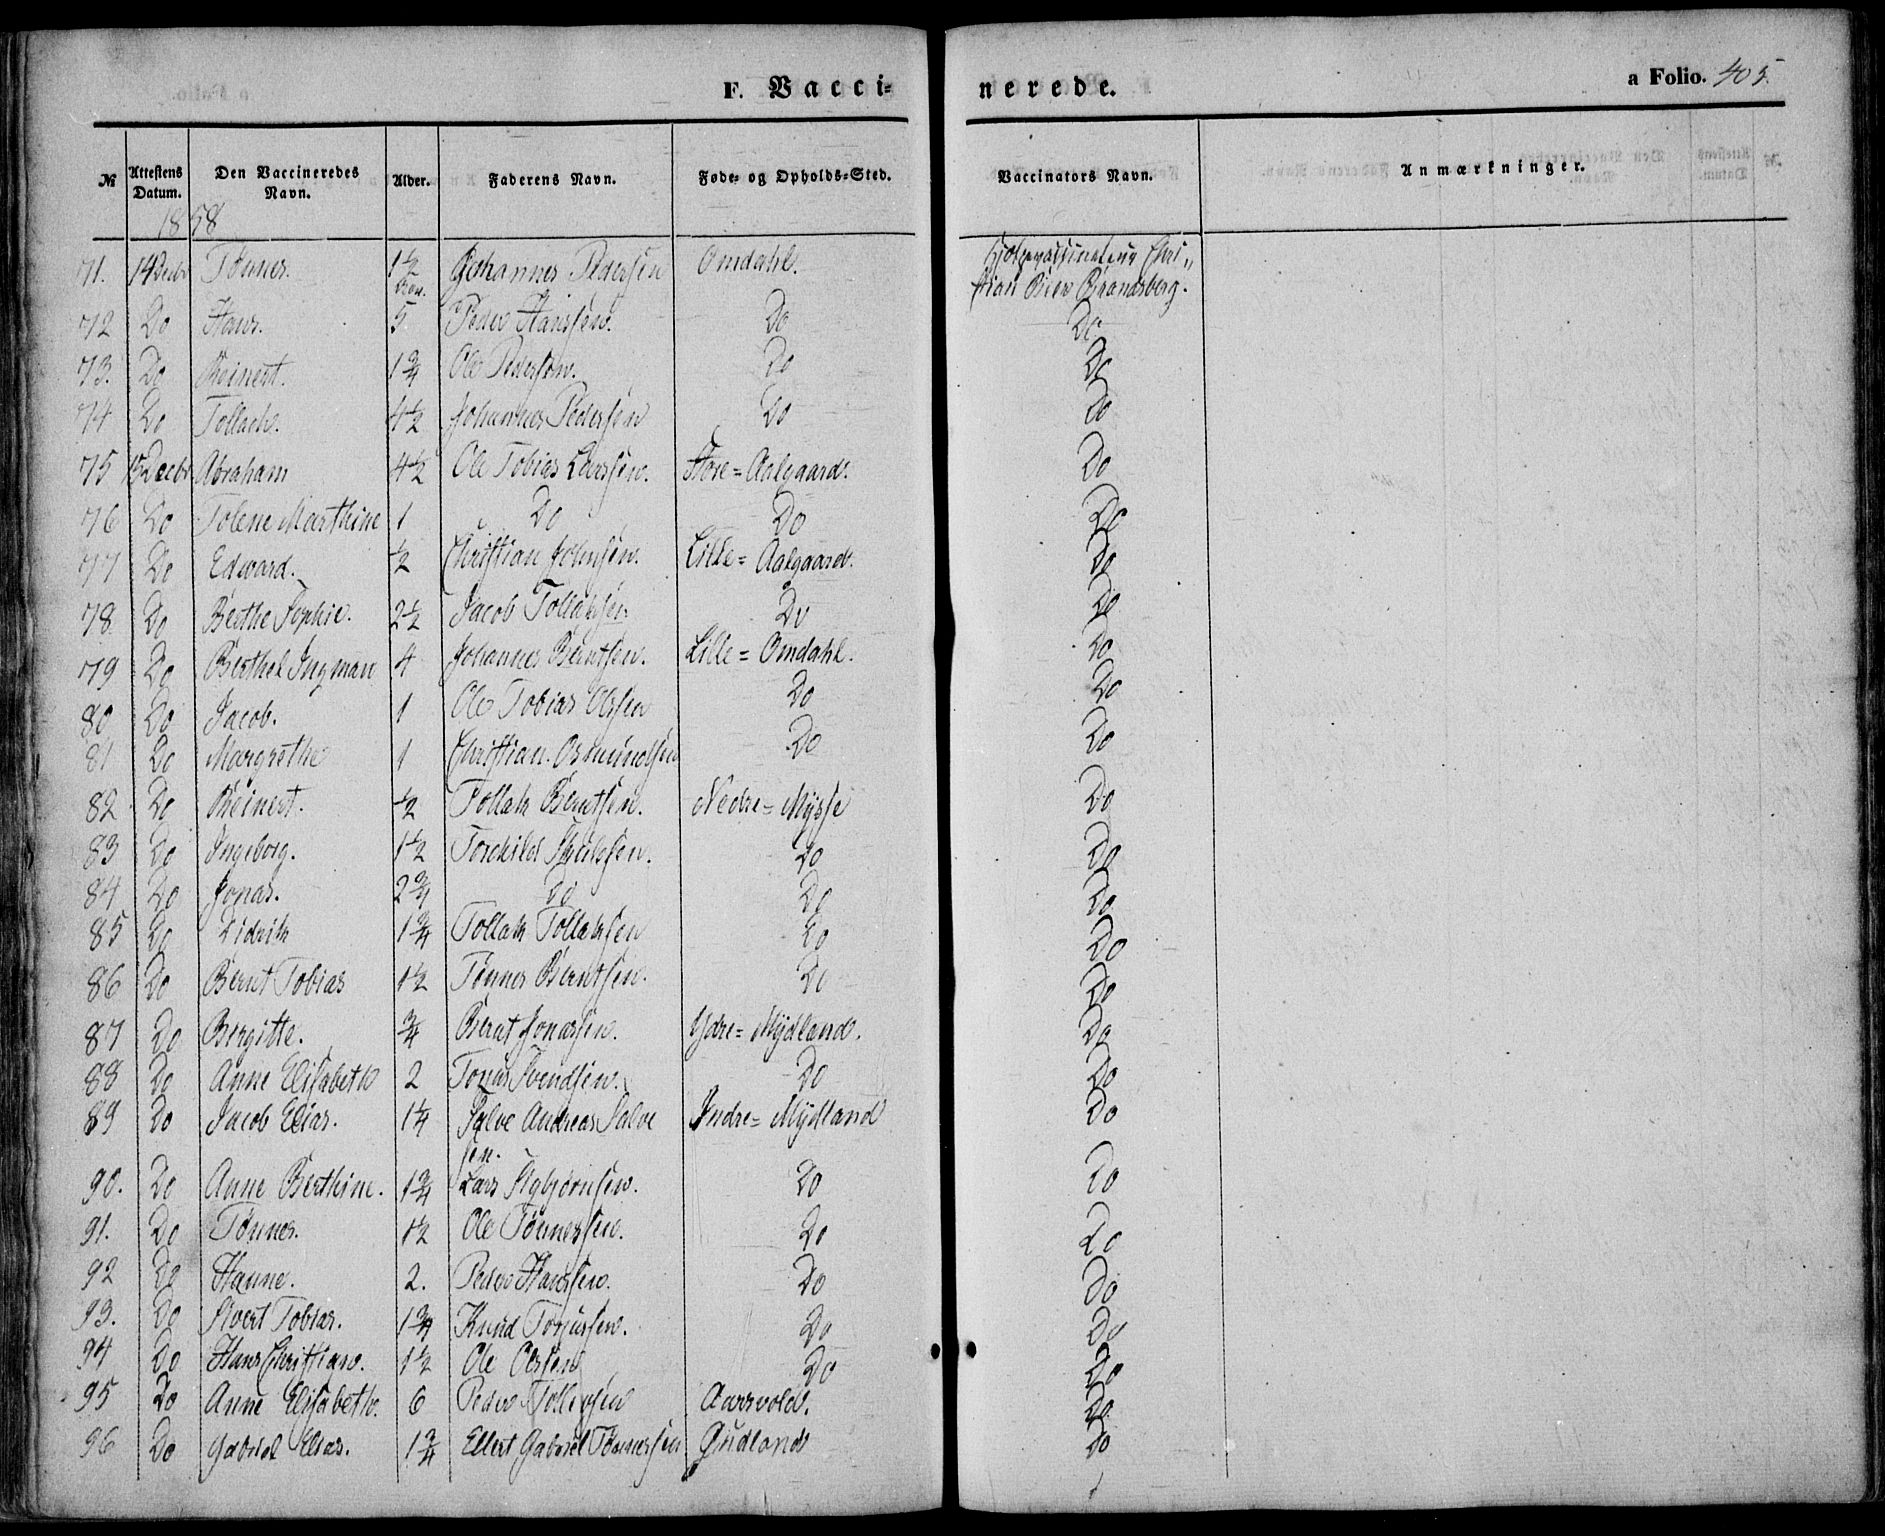 F. Vacci- nerede. a Folio. 405.
№ Attestens Datum. Den Vaccineredes Navn. Alder. Faderens Navn. Føde- og Opholds-Sted. Vaccinators Navn. Anmærkninger.
1858
71. 14 Decbr Tønnes. 1½ Johannes Pedersen Omdahl. Hjelpevassinateur Chri„
stian Brandsberg.
72 Do Hans. 5 Peder Hanssen. Do Do
73. Do Reinert. 1¾ Ole Pedersen. Do Do
74 Do Tollach. 4½ Johannes Pedersen Do Do
75 15 Decbr Abraham 4½ Ole Tobias Larssen. Store=Aalgaard. Do
76 Do Tolene Marthine 1 Do Do Do
77 Do Edward. ½ Christian Johnsen. Lille=Aalgaard. Do
78 Do Berthe Sophie. 2½ Jacob Tollaksen Do Do
79 Do Berthel Ingman 4 Johannes Berntsen. Lille=Omdahl. Do
80 Do Jacob. 1 Ole Tobias Olssen Do Do
81 Do Margrethe 1 Christian Osmundsen Do Do
82 Do Reinert. ½ Tollak Berntsen. Nedre=Mysse Do
83 Do Ingeborg. 1½ Torkild Do Do
84 Do Jonas. 2¾ Do Do Do
85 Do Didrik 1¾ Tollak Tollaksen Do Do
86 Do Bernt Tobias 1½ Tønnes Berntsen. Do Do
87 Do Bergitte. ¾ Bernt Jonassen. Ydre=Mydland. Do
88 Do Anne Elisabeth 2 Tønnes Svendsen. Do Do
89 Do Jacob Elias. 1¼ Salve Andreas Salve Indre=Mydland Do
sen.
90. Do Anne Berthine. 1¾ Lars Asbjørnsen. Do Do
91. Do Tønnes. 1½ Ole Tønnessen. Do Do
92 Do Hanne. 2. Peder Hanssen. Do Do
93. Do Sivert Tobias. 1¾ Knud Torjussen. Do Do
94 Do Hans Christian. 1½ Ole Olssen Do Do
95 Do Anne Elisabeth. 6 Peder Tollevsen Aarsvold. Do
96 Do Gabriel Elias. 1¾ Ellert Gabriel Tønnessen Gudland Do